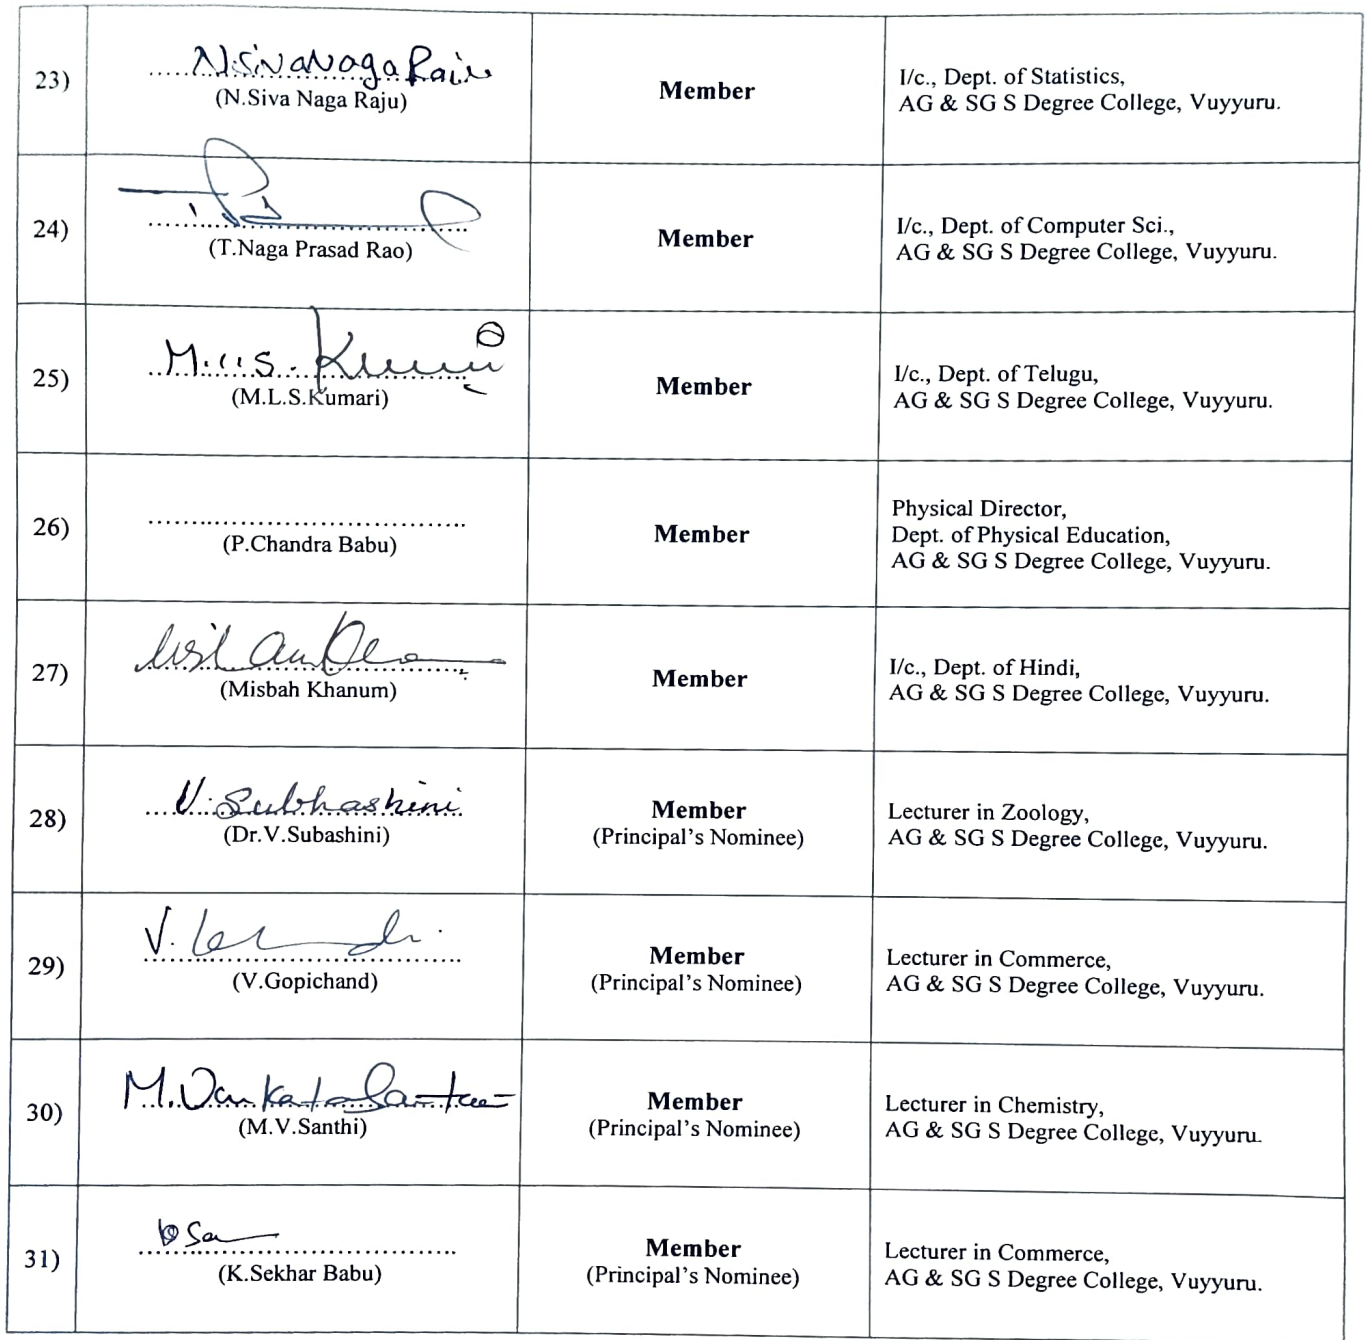 23)
N.SivaNagaRaju
(N.Siva Naga Raju)
Member
I/c., Dept. of Statistics,
AG & SG S Degree College, Vuyyuru.
24)
(T.Naga Prasad Rao)
Member
I/c., Dept. of Computer Sci.,
AG & SG S Degree College, Vuyyuru.
25)
M.L.S. Kumari
(M.L.S.Kumari)
Member
I/c., Dept. of Telugu,
AG & SG S Degree College, Vuyyuru.
26)
(P.Chandra Babu)
Member
Physical Director,
Dept. of Physical Education,
AG & SG S Degree College, Vuyyuru.
27)
(Misbah Khanum)
Member
I/c., Dept. of Hindi,
AG & SG S Degree College, Vuyyuru.
28)
V. Subhashini
(Dr.V.Subashini)
Member
(Principal's Nominee)
Lecturer in Zoology,
AG & SG S Degree College, Vuyyuru.
29)
V.
(V.Gopichand)
Member
(Principal's Nominee)
Lecturer in Commerce,
AG & SG S Degree College, Vuyyuru.
30)
M.Venkata Santhi
(M.V.Santhi)
Member
(Principal's Nominee)
Lecturer in Chemistry,
AG & SG S Degree College, Vuyyuru.
31)
(K.Sekhar Babu)
Member
(Principal's Nominee)
Lecturer in Commerce,
AG & SG S Degree College, Vuyyuru.